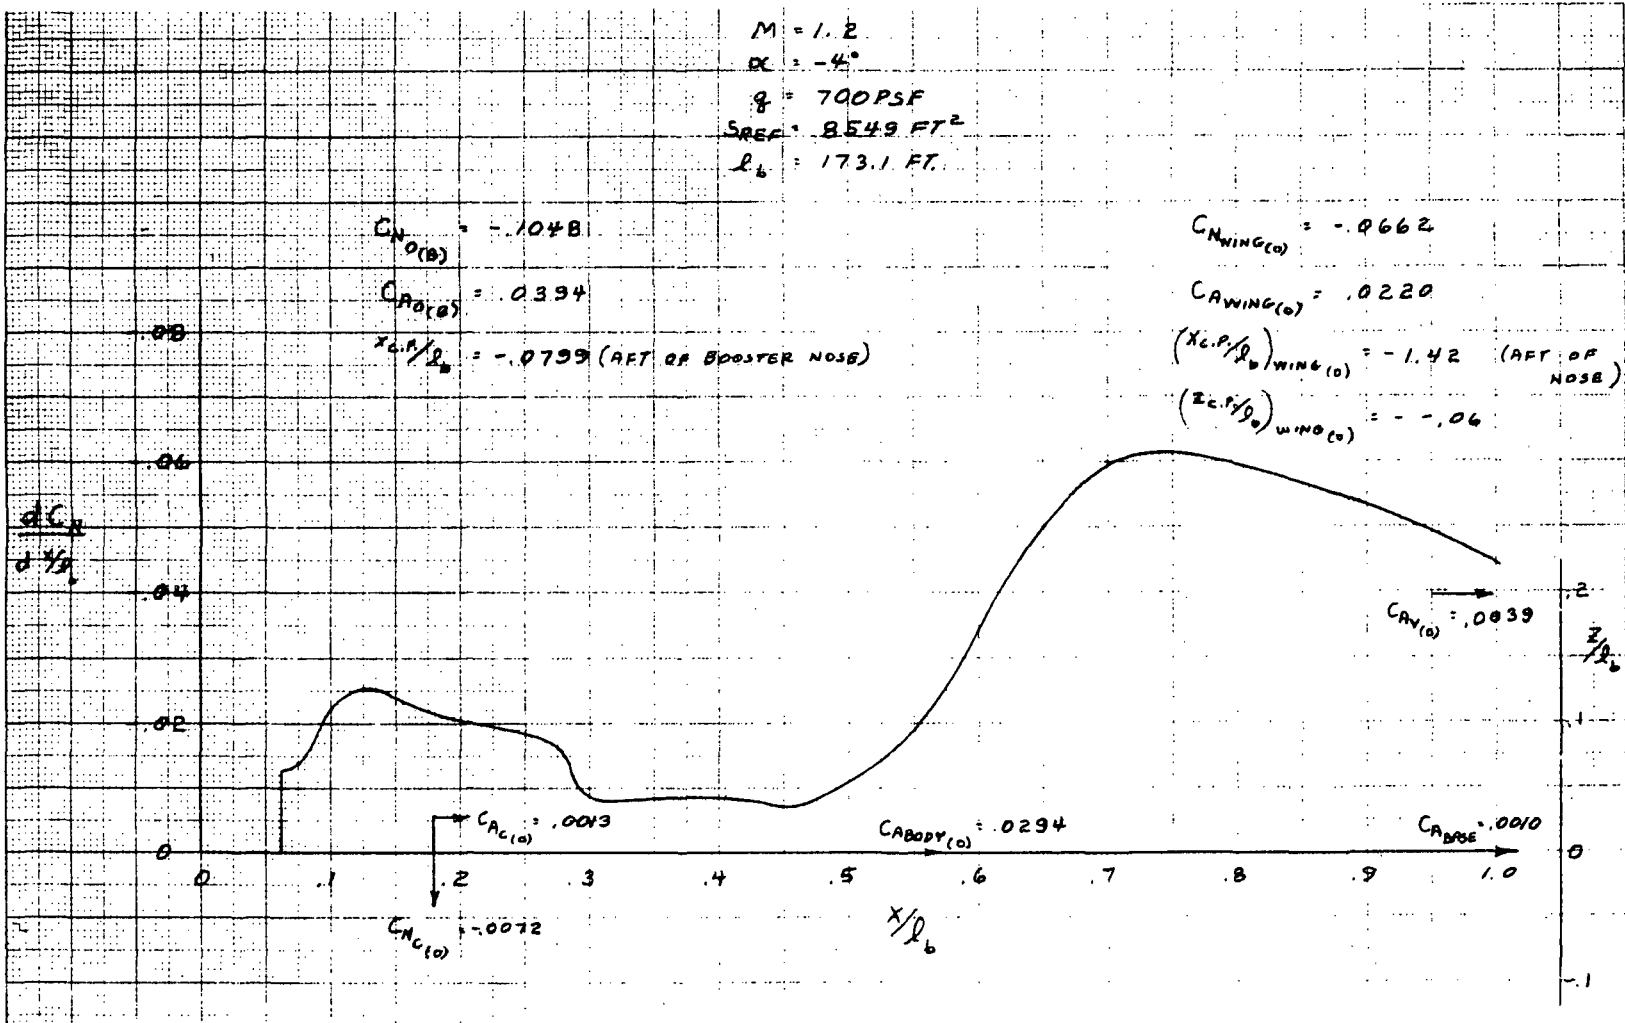 M = 1.2
α = -4°
q = 700 PSF
SREF = 8549 FT²
l_b = 173.1 FT.
C_N_O(B) = -.1048
C_A_O(B) = .0394
X_C.P./l_b = -.0799 (AFT OF BOOSTER NOSE)
C_N_WING(O) = -.0662
C_A_WING(O) = .0220
(X_C.P./l_b)_WING(O) = -1.42 (AFT OF NOSE)
(Z_C.P./l_b)_WING(O) = - -.06
.08
.06
.04
.02
0
dC_N
d X/l_b
C_A_C(O) = .0013
C_N_C(O) = -.0072
C_A_BODY(O) = .0294
C_A_BASE = .0010
C_A_V(O) = .0039
0 .1 .2 .3 .4 .5 .6 .7 .8 .9 1.0
X/l_b
.2
Z/l_b
.1
0
-.1